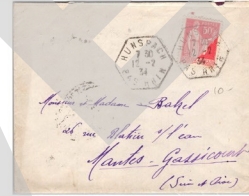 HUNSPACH
7 30
12-7
34
BAS RHIN
50
34
S RHIN
10-
Monsieur et Madame Bahel
26 rue Station s/l'eau
Mantes-Gassicourt
(Seine et Oise)